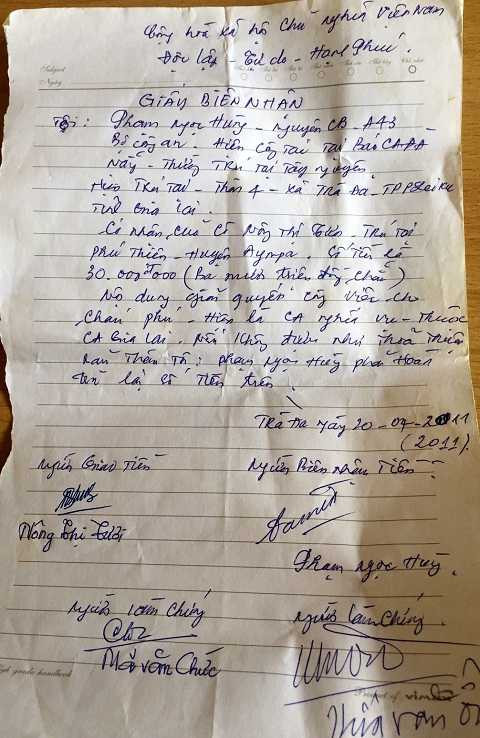 Cộng hoà xã hộ Chủ nghĩa Việt Nam
Độc lập - Tự do - Hạnh Phúc.
Subject
Ngày
GIẤY BIÊN NHẬN
Tôi: Phạm Ngọc Hưng - Nguyên CB - A43
Bộ Công an. Hiện Công tác tại Báo CAPA
Thường Trú tại Tây Nguyên
Hiện Trú tại - Thôn 4 - Xã Trà Đa - TP Pleiku
Tỉnh Gia Lai.
Có nhận của Cô Nông Thị Tươi - Trú tại
Phú Thiện - Huyện Ayunpa. Số Tiền là
30.000.000 (Ba mươi triệu đồng chẵn)
Nội dung giải quyết công việc cho
- Hiện là CA nghĩa vụ - Thuộc
CA Gia Lai. Nếu Không được như Thoả Thuận
Bản Thân Tôi: Phạm Ngọc Hưng phải Hoàn
trả lại số Tiền trên.
Trà Đa Ngày 20-04-2011
(2011).
Người Giao Tiền
Người Biên nhận Tiền
Nông Thị Tươi
Phạm Ngọc Hưng
Người làm Chứng
Người làm Chứng
văn Chức
High grade handbook
Product of
văn